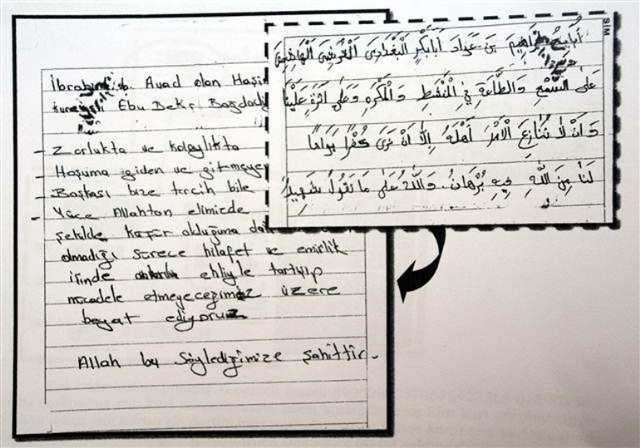 İbrahim b. Avad olan Haşim
Kureyşli Ebu Bekr Bağdadi
- Zorlukta ve kolaylıkta
Hoşuma giden ve gitmeyen
- Başkası bize tercih bile
- Yüce Allahtan elimizde
Şekilde kafir olduğuna dai
olmadığı sürece hilafet ve emirlik
işinde ehliyle tartışıp
mücadele etmeyeceğimiz üzere
beyat ediyoruz
Allah bu söylediğimize şahittir.
أُبَايِعُ إبْرَاهِيمَ بنَ عَوَاد أَبَابَكْرٍ الْبَغْدَادِيَ الْقُرَشِيَ الْهَاشِمِيَ
عَلَى السَّمْعِ وَالطَّاعَةِ فِي الْمَنْشَطِ وَالْمَكْرَهِ وَعَلَى أَثَرَةٍ عَلَيْنَا
وَانْ لَا نُنَازِعَ الْأَمْرَ أَهْلَهُ إِلَّا أَنْ نَرَى كُفْرًا بَوَاحًا
لَنَا مِنَ اللَّهِ فِيهِ بُرْهَانٌ. وَاللَّهُ عَلَى مَا نَقُولُ شَهِيدٌ